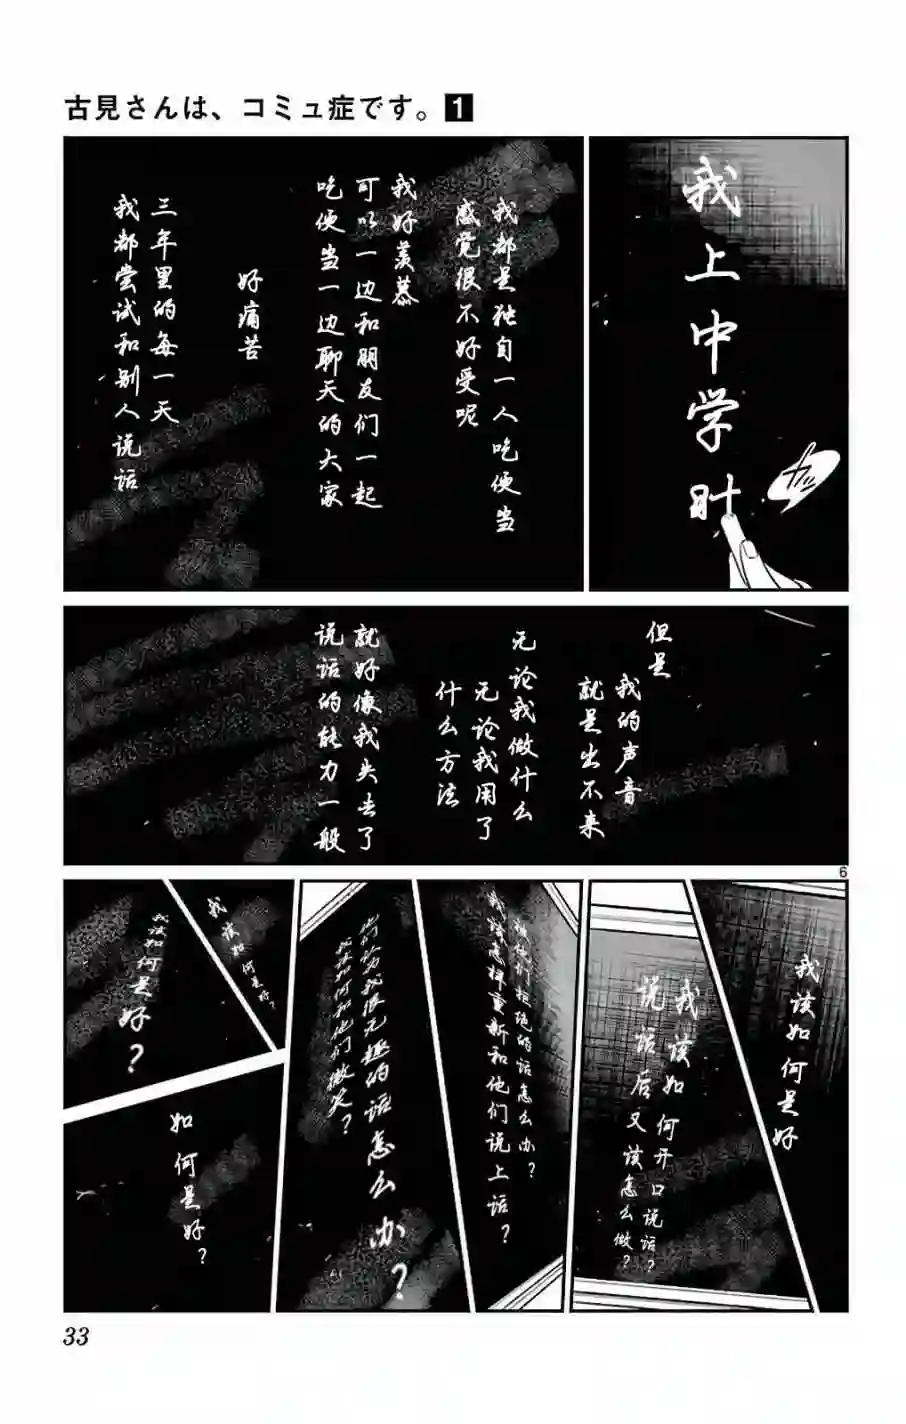 古見さんは、コミュ症です。1
我上中学时
カッ
我都是独自一人吃便当
感觉很不好受呢
我好羡慕
可以一边和朋友们一起
吃便当一边聊天的大家
好痛苦
三年里的每一天
我都尝试和别人说话
但是
我的声音
就是出不来
无论我做什么
无论我用了
什么方法
就好像我失去了
说话的能力一般
6
我该如何是好
我该如何开口说话?
说话后又该怎么做?
被他们拒绝的话怎么办?
我该怎样重新和他们说上话?
他们认为我很无趣的话怎么办?
我该如何和他们微笑?
我该如何是好?
我该如何是好?
如何是好?
33